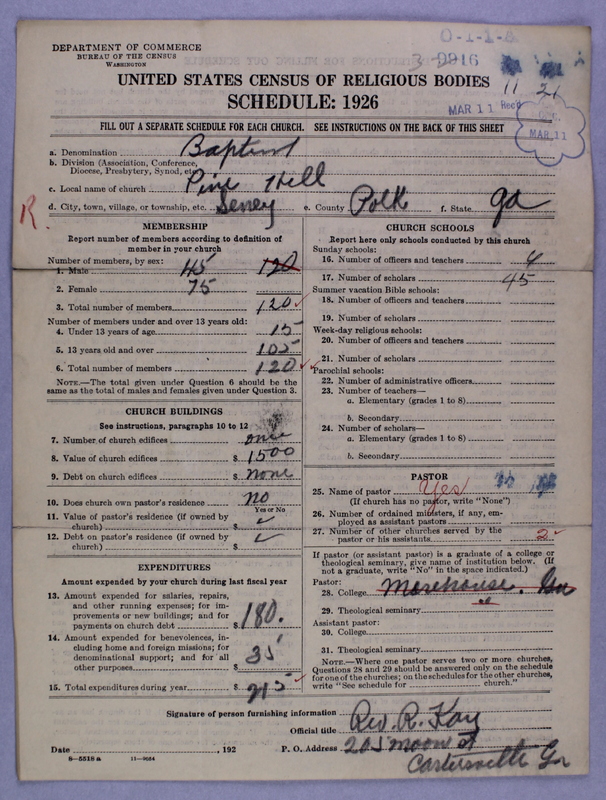 O-1-1-8
DEPARTMENT OF COMMERCE
BUREAU OF THE CENSUS
WASHINGTON
3 0916
UNITED STATES CENSUS OF RELIGIOUS BODIES
SCHEDULE: 1926
11 21
MAR 11 Rec'd
MAR 11
FILL OUT A SEPARATE SCHEDULE FOR EACH CHURCH. SEE INSTRUCTIONS ON THE BACK OF THIS SHEET
a. Denomination Baptist
b. Division (Association, Conference, Diocese, Presbytery, Synod, etc.
c. Local name of church Pine Hill
d. City, town, village, or township, etc. Seney e. County Polk f. State Ga
R.
MEMBERSHIP
Report number of members according to definition of
member in your church
Number of members, by sex:
1. Male 45 120
2. Female 75
3. Total number of members 120
Number of members under and over 13 years old:
4. Under 13 years of age 15
5. 13 years old and over 105
6. Total number of members 120
NOTE.—The total given under Question 6 should be
same as the total of males and females given under Question 3.
CHURCH BUILDINGS
See instructions, paragraphs 10 to 12
7. Number of church edifices one
8. Value of church edifices $ 1500
9. Debt on church edifices $ none
10. Does church own pastor's residence no
Yes or No
11. Value of pastor's residence (if owned by
church) $ ✓
12. Debt on pastor's residence (if owned by
church) $ ✓
EXPENDITURES
Amount expended by your church during last fiscal year
13. Amount expended for salaries, repairs,
and other running expenses; for im-
provements or new buildings; and for
payments on church debt $ 180.
14. Amount expended for benevolences, in-
cluding home and foreign missions; for
denominational support; and for all
other purposes $ 35
15. Total expenditures during year $ 215
CHURCH SCHOOLS
Report here only schools conducted by this church
Sunday schools:
16. Number of officers and teachers 4
17. Number of scholars 45
Summer vacation Bible schools:
18. Number of officers and teachers
19. Number of scholars
Week-day religious schools:
20. Number of officers and teachers
21. Number of scholars
Parochial schools:
22. Number of administrative officers
23. Number of teachers—
a. Elementary (grades 1 to 8)
b. Secondary
24. Number of scholars—
a. Elementary (grades 1 to 8)
b. Secondary
PASTOR
25. Name of pastor Yes
(If church has no pastor, write "None")
26. Number of ordained ministers, if any, em-
ployed as assistant pastors
27. Number of other churches served by the
pastor or his assistants 2
If pastor (or assistant pastor) is a graduate of a college or
theological seminary, give name of institution below. (If
not a graduate, write "No" in the space indicated.)
Pastor:
28. College Morehouse.
29. Theological seminary
Assistant pastor:
30. College
31. Theological seminary
NOTE.—Where one pastor serves two or more churches,
Questions 28 and 29 should be answered only on the schedule
for one of the churches; on the schedules for the other churches,
write "See schedule for church."
Signature of person furnishing information Rev. R. Kay
Official title
Date , 192 P. O. Address 205 moon st
8-5518 a 11-9684 Cartersville Ga